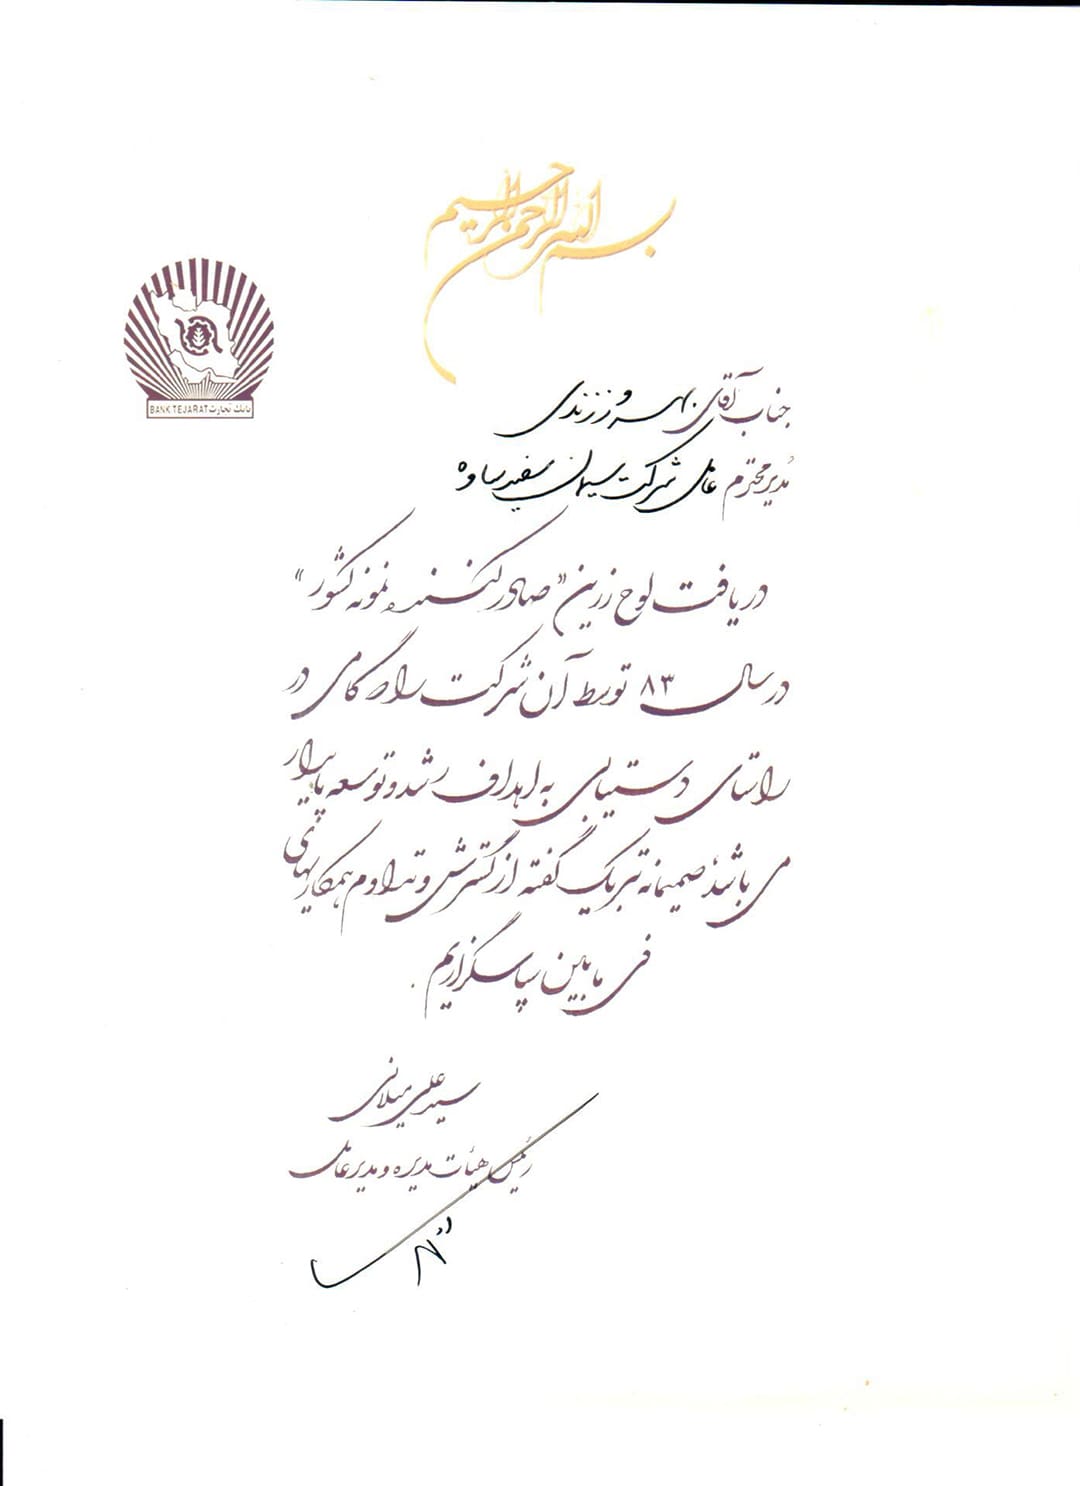 بسم الله الرحمن الرحیم
بانک تجارت BANK TEJARAT
جناب آقای بهروز زندی
مدیر محترم عامل شرکت سیمان سفید ساوه
دریافت لوح زرین "صادر کننده نمونه کشور"
در سال ۸۳ توسط آن شرکت را که گامی در
راستای دستیابی به اهداف رشد و توسعه پایدار
می باشد، صمیمانه تبریک گفته از گسترش و تداوم همکاریهای
فی ما بین سپاسگزاریم.
سید علی میلانی
رئیس هیأت مدیره و مدیر عامل